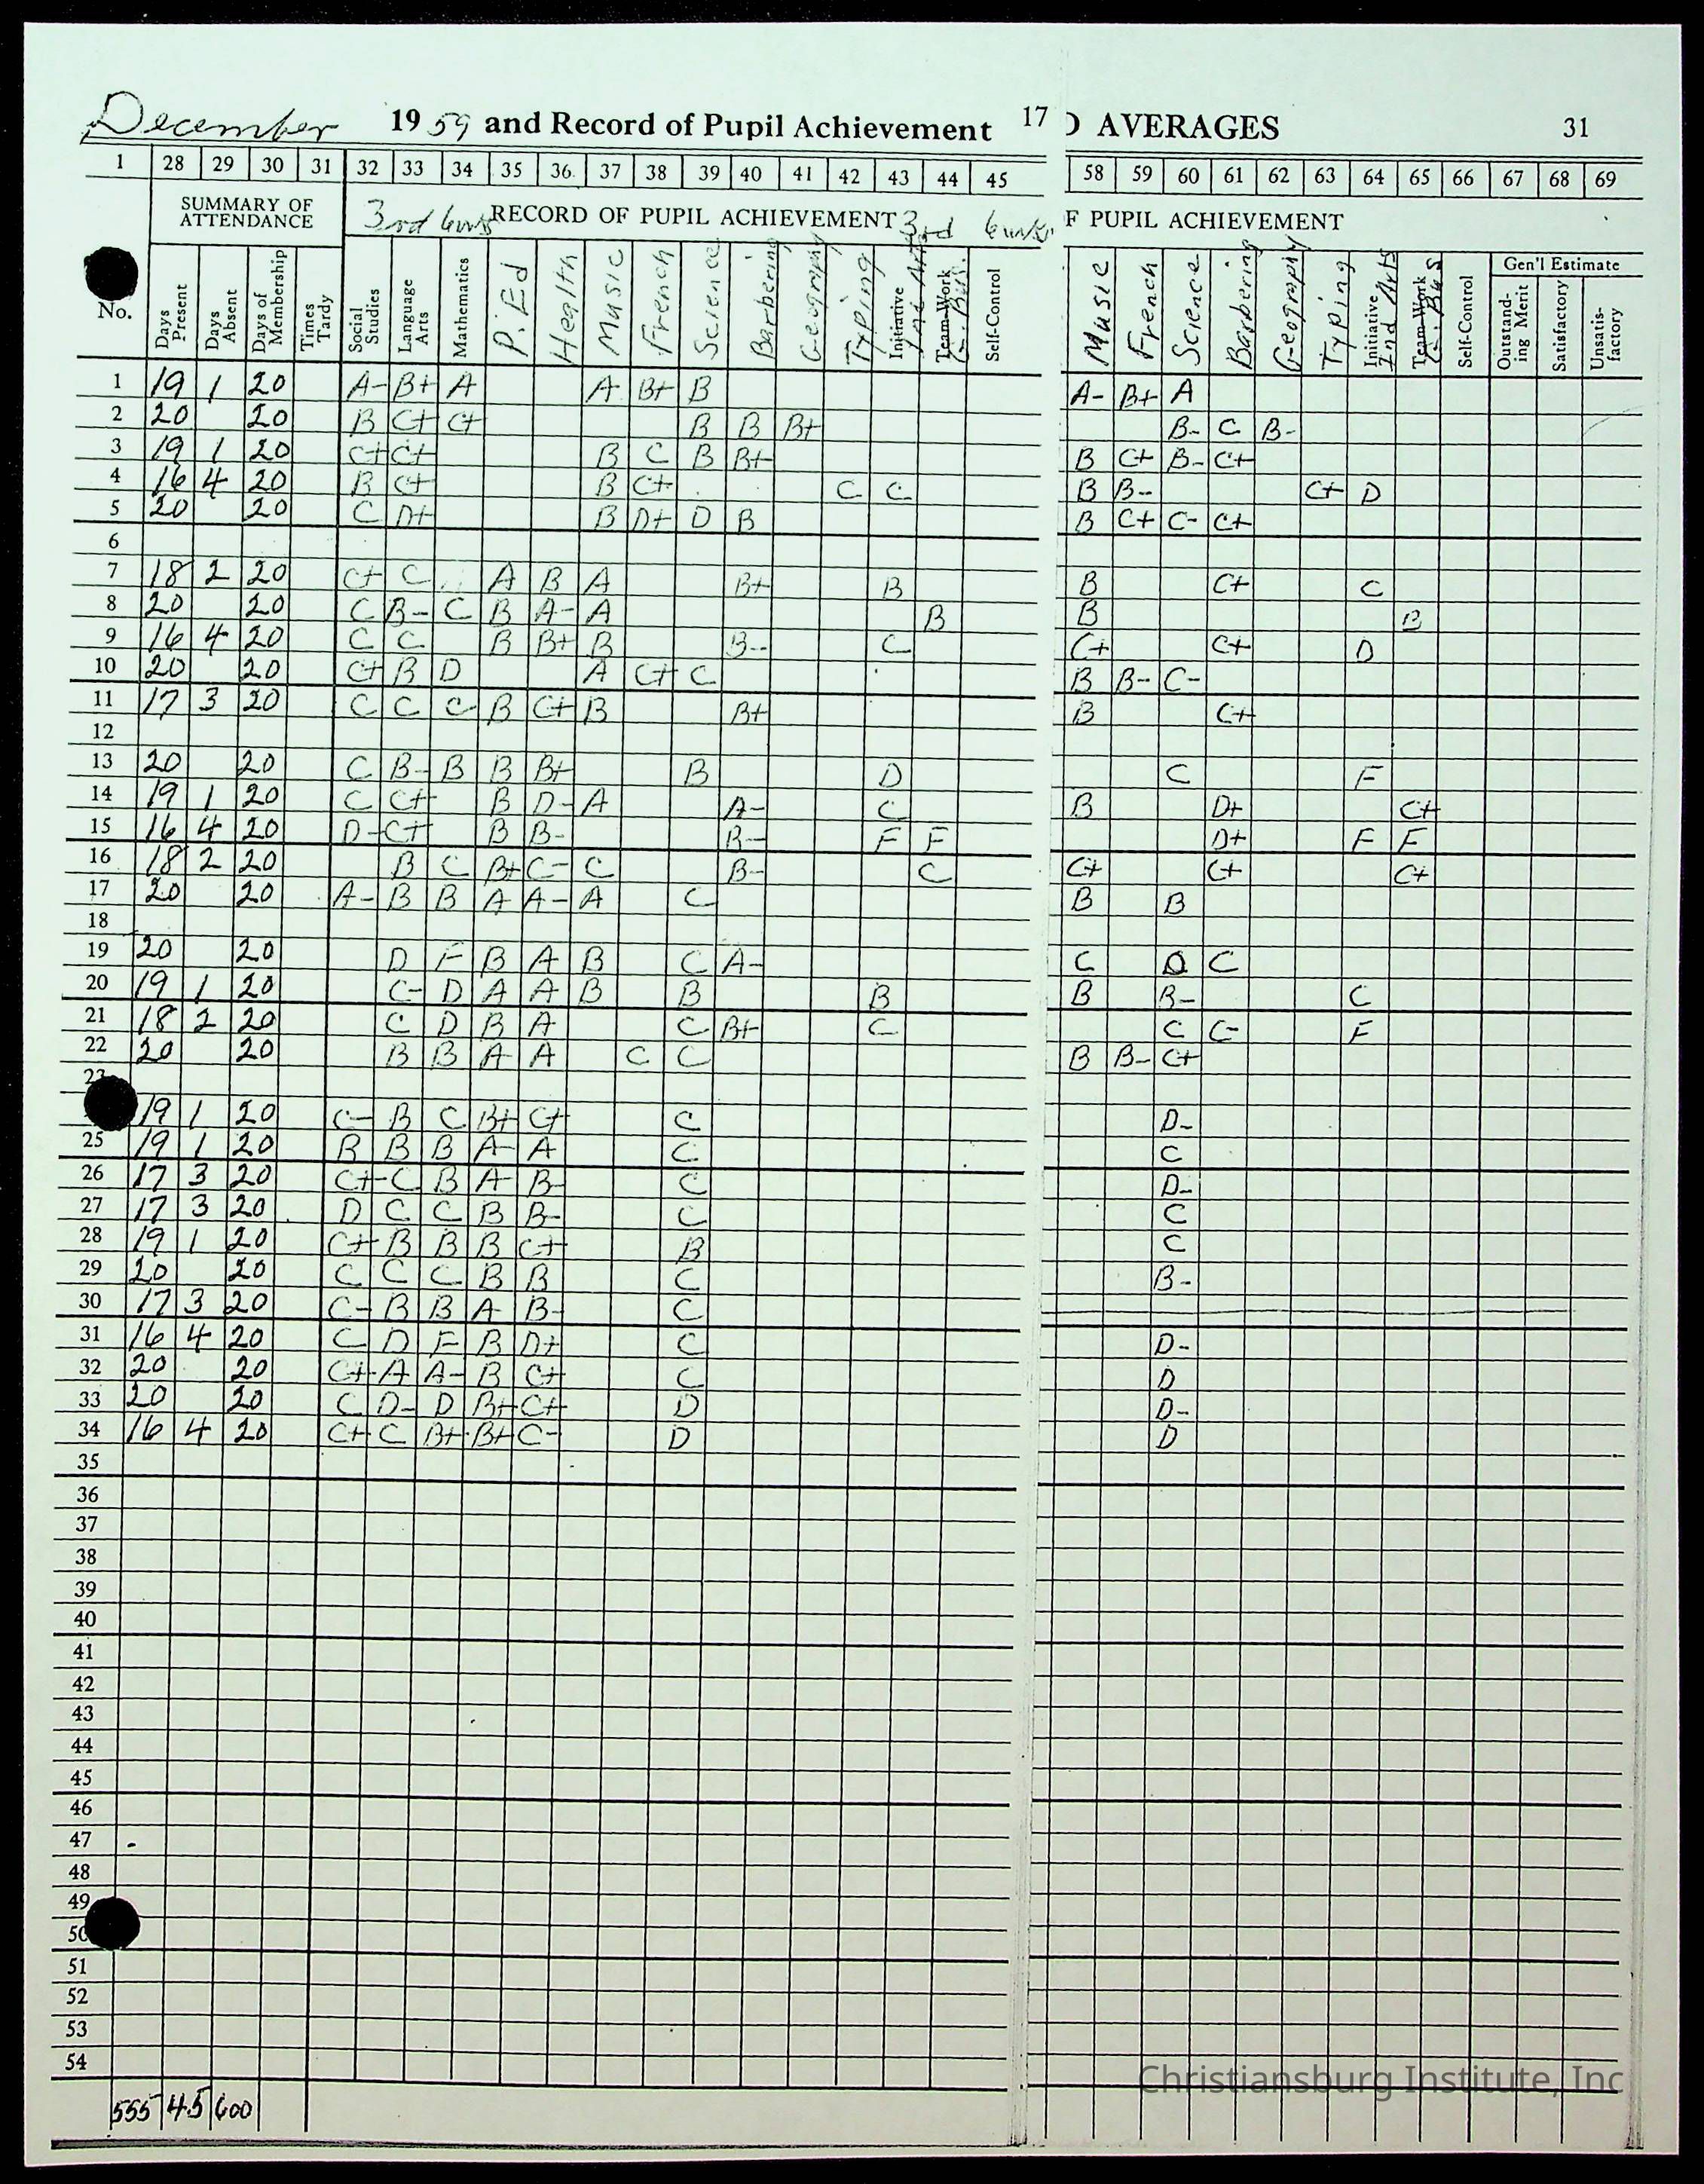 December 1959 and Record of Pupil Achievement 17 D AVERAGES 31
1 28 29 30 31 32 33 34 35 36 37 38 39 40 41 42 43 44 45 58 59 60 61 62 63 64 65 66 67 68 69
SUMMARY OF ATTENDANCE 3rd 6wks RECORD OF PUPIL ACHIEVEMENT 3rd 6wks F PUPIL ACHIEVEMENT
Gen'l Estimate
No. Days Present Days Absent Days of Membership Times Tardy Social Studies Language Arts Mathematics P. Ed Health Music French Science Barbering Geography Typing Initiative Ind Arts Team-Work Bus. Self-Control Music French Science Barbering Geography Typing Initiative Ind Arts Team-Work Bus Self-Control Outstanding Merit Satisfactory Unsatisfactory
1 19 1 20 A- B+ A A B+ B A- B+ A
2 20 20 B C+ C+ B B B+ B- C B-
3 19 1 20 C+ C+ B C B B+ B C+ B- C+
4 16 4 20 B C+ B C+ C C B B- C+ D
5 20 20 C D+ B D+ D B B C+ C- C+
6
7 18 2 20 C+ C A B A B+ B B C+ C
8 20 20 C B- C B A- A B B B
9 16 4 20 C C B B+ B B- C C+ C+ D
10 20 20 C+ B D A C+ C B B- C-
11 17 3 20 C C C B C+ B B+ B C+
12
13 20 20 C B- B B B+ B D C F
14 19 1 20 C C+ B D- A A- C B D+ C+
15 16 4 20 D- C+ B B- B- F F D+ F F
16 18 2 20 B C B+ C- C B- C C+ C+ C+
17 20 20 A- B B A A- A C B B
18
19 20 20 D F B A B C A- C D C
20 19 1 20 C- D A A B B B B B- C
21 18 2 20 C D B A C B+ C C C- F
22 20 20 B B A A C C B B- C+
23
19 1 20 C- B C B+ C+ C D-
25 19 1 20 B B B A- A C C
26 17 3 20 C+ C B A B- C D-
27 17 3 20 D C C B B- C C
28 19 1 20 C+ B B B C+ B C
29 20 20 C C C B B C B-
30 17 3 20 C- B B A B- C
31 16 4 20 C D F B D+ C D-
32 20 20 C+ A A- B C+ C D
33 20 20 C D- D B+ C+ D D-
34 16 4 20 C+ C B+ B+ C- D D
35
36
37
38
39
40
41
42
43
44
45
46
47
48
49
50
51
52
53
54
555 45 600
Christiansburg Institute, Inc